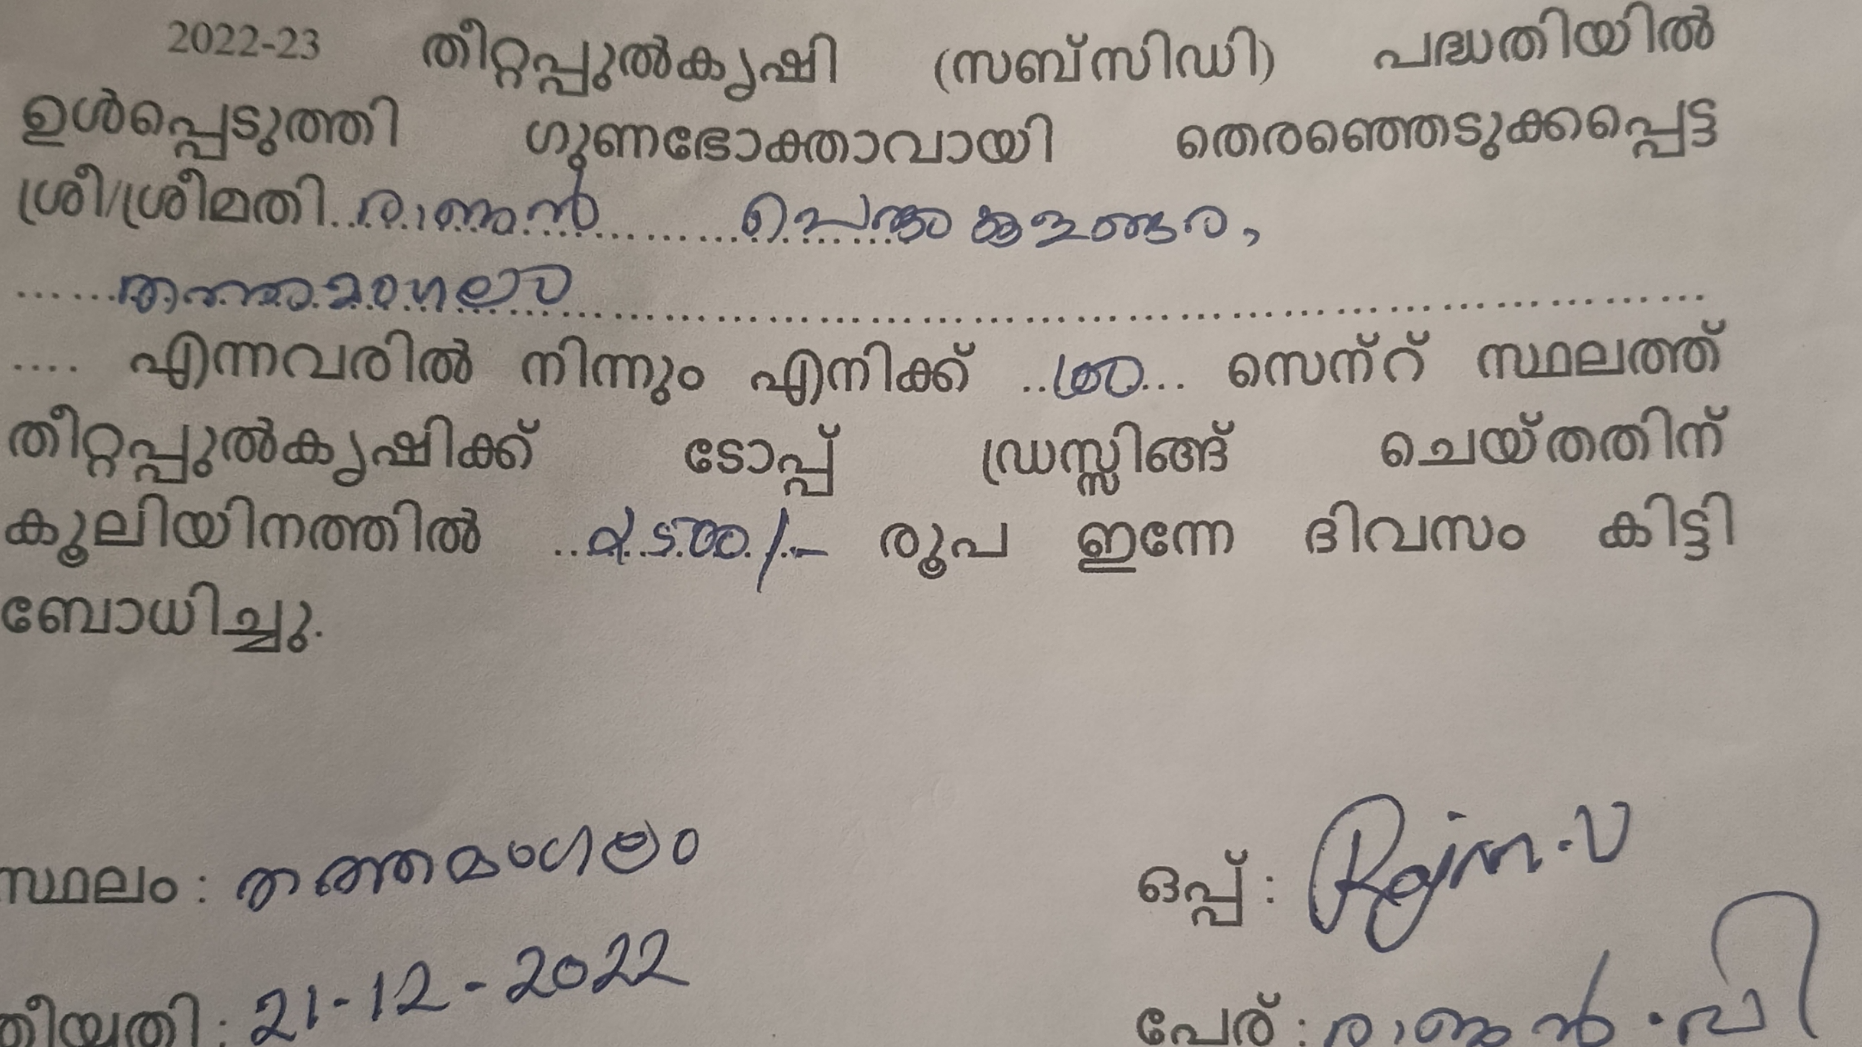 2022-23 തീറ്റപ്പുൽകൃഷി (സബ്സിഡി) പദ്ധതിയിൽ
ഉൾപ്പെടുത്തി ഗുണഭോക്താവായി തെരഞ്ഞെടുക്കപ്പെട്ട
ശ്രീ/ശ്രീമതി..രാജൻ
തത്തമംഗലം
.... എന്നവരിൽ നിന്നും എനിക്ക് ..100... സെന്റ് സ്ഥലത്ത്
തീറ്റപ്പുൽകൃഷിക്ക് ടോപ്പ് ഡ്രസ്സിങ്ങ് ചെയ്തതിന്
കൂലിയിനത്തിൽ രൂപ ഇന്നേ ദിവസം കിട്ടി
ബോധിച്ചു.
സ്ഥലം : തത്തമംഗലം
ഒപ്പ് : Rajan.V
തീയ്യതി : 21-12-2022
പേര് : രാജൻ.വി